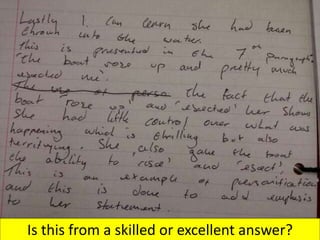 Lastly I can learn she had been
thrown into the water.
This is presented in the 7th paragraph
'the boat rose up and pretty much
ejected me'.
The use of perso the fact that the
boat 'rose up' and 'ejected' her shows
she had little control over what was
happening which is thrilling but also
terrifying. She also gave the boat
the ability to 'rise' and 'eject'.
This is an example of personification
and this is done to add emphasis
to her statement.
Is this from a skilled or excellent answer?